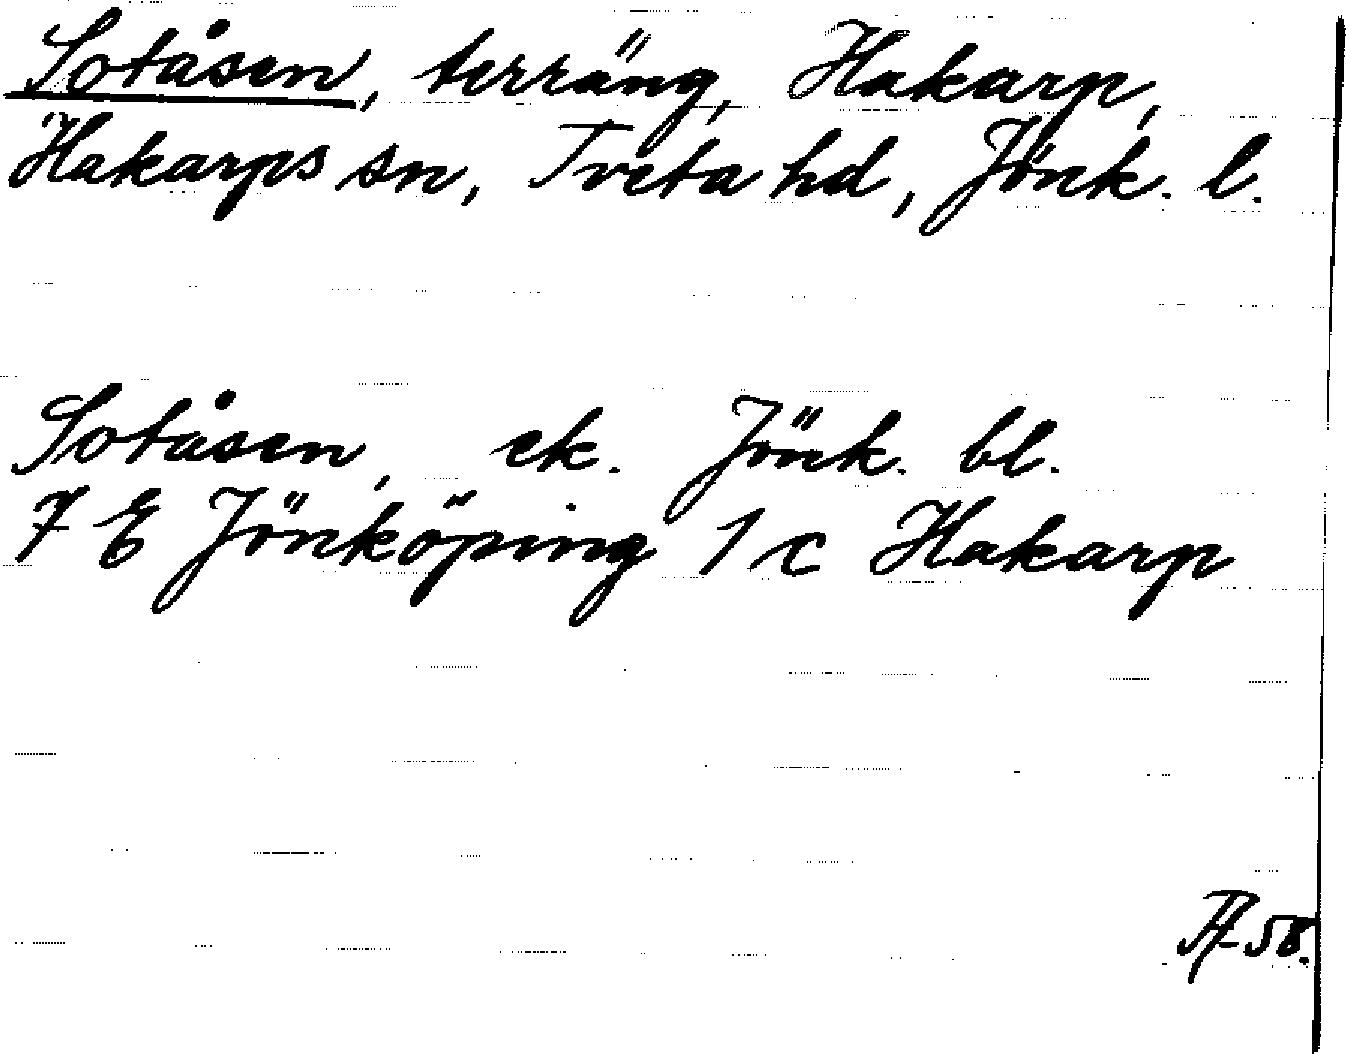 Sotåsen, terräng, Hakarp,
Hakarps sn, Tveta hd, Jönk. l.
Sotåsen, ek. Jönk. bl.
7 E Jönköping 1 c Hakarp